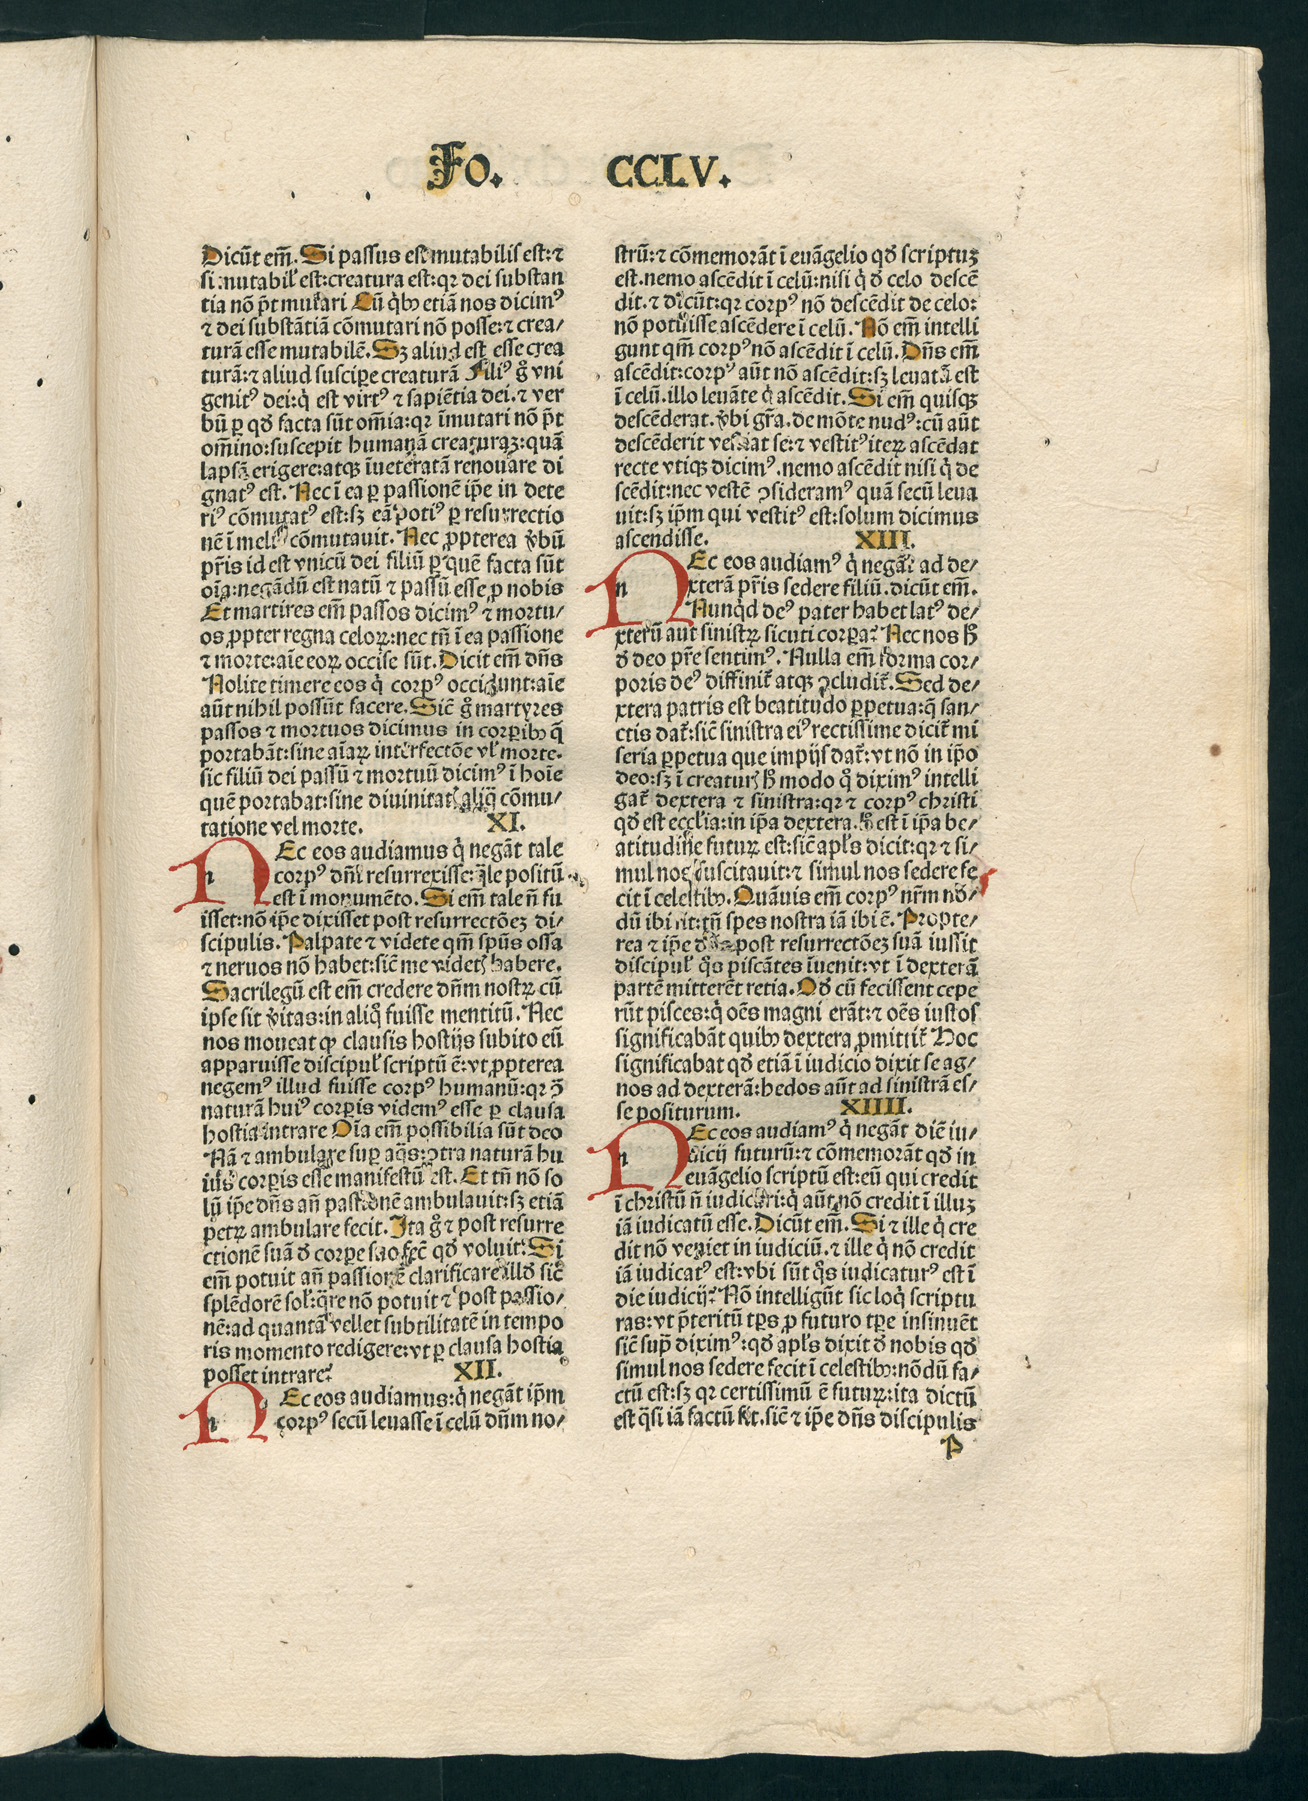 Fo. CCLV.
Dicūt em̄. Si passus est mutabilis est: ⁊
si mutabil' est: creatura est: qr dei substan
tia nō p̄t mutari Cū q̇bꝫ etiā nos dicimꝰ
⁊ dei substātiā cōmutari nō posse: ⁊ crea⸗
turā esse mutabilē. Sꝫ aliud est esse crea
turā: ⁊ aliud suscipe creaturā Filiꝰ g̊ vni
genitꝰ dei: q̇ est virtꝰ ⁊ sapiētia dei. ⁊ ver
bū ꝑ qď facta sūt om̄ia: qr īmutari nō p̄t
om̄ino: suscepit humanā creaturaꝫ: quā
lapsā erigere: atqꝫ īueteratā renouare di
gnatꝰ est. Nec ī ea ꝑ passionē ip̄e in dete
riꝰ cōmutatꝰ est: sꝫ eā potiꝰ ꝑ resurrectio
nē ī meliꝰ cōmutauit. Nec ꝓpterea v̓bū
pr̄is id est vnicū dei filiū ꝑ quē facta sūt
oīa: negādū est natū ⁊ passū esse ꝓ nobis
Et martires em̄ passos dicimꝰ ⁊ mortu⸗
os ꝓpter regna celoꝝ: nec tn̄ ī ea passione
⁊ morte: aīe eoꝝ occise sūt. Dicit em̄ dn̄s
Nolite timere eos q̇ corpꝰ occidunt: aīe
aūt nihil possūt facere. Sic̄ g̊ martyres
passos ⁊ mortuos dicimus in corꝑibꝫ q̄
portabāt: sine aīaꝝ interfectōe vl' morte.
sic filiū dei passū ⁊ mortuū dicimꝰ ī hoīe
quē portabat: sine diuinitatꝭ aliq̄ cōmu⸗
tatione vel morte. XI.
NEc eos audiamus q̇ negāt tale
corpꝰ dn̄i resurrexisse: q̄le positū
est ī monumēto. Si em̄ tale n̄ fu
isset: nō ip̄e dixisset post resurrectōeꝫ di⸗
scipulis. Palpate ⁊ videte qm̄ spūs ossa
⁊ neruos nō habet: sic̄ me videtꝭ habere.
Sacrilegū est em̄ credere dn̄m nostꝝ cū
ipse sit v̓itas: in aliq̊ fuisse mentitū. Nec
nos moueat ꝙ clausis hostijs subito eū
apparuisse discipul' scriptū ē: vt ꝓpterea
negemꝰ illud fuisse corpꝰ humanū: qr ɔ̄
naturā huiꝰ corꝑis videmꝰ esse ꝑ clausa
hostia intrare Oīa em̄ possibilia sūt deo
Nā ⁊ ambulare suꝑ aq̄s: ɔtra naturā hu
iꝰ corꝑis esse manifestū est. Et tn̄ nō so
lū ip̄e dn̄s an̄ passionē ambulauit: sꝫ etiā
petꝝ ambulare fecit. Ita g̊ ⁊ post resurre
ctionē suā ď corꝑe suo fec̄ qď voluit. Si
em̄ potuit an̄ passionē clarificare illď sic̄
splēdorē sol': q̄re nō potuit ⁊ post passio⸗
nē: ad quantā vellet subtilitatē in tempo
ris momento redigere: vt ꝑ clausa hostia
posset intrare? XII.
NEc eos audiamus: q̇ negāt ip̄m
corpꝰ secū leuasse ī celū dn̄m no⸗
strū: ⁊ cōmemorāt ī euāgelio qď scriptuꝫ
est. nemo ascēdit ī celū: nisi q̇ ď celo descē
dit. ⁊ dicūt: qr corpꝰ nō descēdit de celo:
nō potuisse ascēdere ī celū. Nō em̄ intelli
gunt qm̄ corpꝰ nō ascēdit ī celū. Dn̄s em̄
ascēdit: corpꝰ aūt nō ascēdit: sꝫ leuatā est
ī celū. illo leuāte q̇ ascēdit. Si em̄ quisqꝫ
descēderat. v̓bi gr̄a. de mōte nudꝰ: cū aūt
descēderit vestiat se: ⁊ vestitꝰ iteꝝ ascēdat
recte vtiqꝫ dicimꝰ. nemo ascēdit nisi q̇ de
scēdit: nec vestē ɔsideramꝰ quā secū leua
uit: sꝫ ip̄m qui vestitꝰ est: solum dicimus
ascendisse. XIII.
NEc eos audiamꝰ q̇ negāt ad de⸗
xterā pr̄is sedere filiū. dicūt em̄.
Nunq̇d deꝰ pater habet latꝰ de⸗
xterū aut sinistꝝ sicuti corꝑa? Nec nos h̊
ď deo pr̄e sentimꝰ. Nulla em̄ forma cor⸗
poris deꝰ diffinit̄ atqꝫ ɔcludit̄. Sed de⸗
xtera patris est beatitudo ꝑpetua: q̄ san⸗
ctis dat̄: sic̄ sinistra eiꝰ rectissime dicit̄ mi
seria ꝑpetua que impijs dat̄: vt nō in ip̄o
deo: sꝫ ī creaturꝭ h̊ modo q̊ diximꝰ intelli
gat̄ dextera ⁊ sinistra: qr ⁊ corpꝰ christi
qď est eccl'ia: in ip̄a dextera. h̊ est ī ip̄a be⸗
atitudine futuꝝ est: sic̄ apl's dicit: qr ⁊ si⸗
mul nos suscitauit: ⁊ simul nos sedere fe
cit ī celestibꝫ. Quāuis em̄ corpꝰ nr̄m nō⸗
dū ibi sit: tn̄ spes nostra iā ibi ē. Propte⸗
rea ⁊ ip̄e post resurrectōeꝫ suā iussit
discipul' q̊s piscātes īuenit: vt ī dexterā
partē mitterēt retia. Qď cū fecissent cepe
rūt pisces: q̇ oēs magni erāt: ⁊ oēs iustos
significabāt quibꝫ dextera ꝓmittit̄ Hoc
significabat qď etiā ī iudicio dixit se ag⸗
nos ad dexterā: hedos aūt ad sinistrā es⸗
se positurum. XIIII.
NEc eos audiamꝰ q̇ negāt diē iu⸗
dicij futurū: ⁊ cōmemorāt qď in
euāgelio scriptū est: eū qui credit
ī christū n̄ iudicari: q̇ aūt nō credit ī illuꝫ
iā iudicatū esse. Dicūt em̄. Si ⁊ ille q̇ cre
dit nō veniet in iudiciū. ⁊ ille q̇ nō credit
iā iudicatꝰ est: vbi sūt q̊s iudicaturꝰ est ī
die iudicij? Nō intelligūt sic loq̇ scriptu
ras: vt p̄teritū tp̄s ꝓ futuro tp̄e insinuēt
sic̄ sup̄ diximꝰ: qď apl's dixit ď nobis qď
simul nos sedere fecit ī celestibꝫ: nōdū fa⸗
ctū est: sꝫ qr certissimū ē futuꝝ: ita dictū
est q̄si iā factū sit. sic̄ ⁊ ip̄e dn̄s discipulis
P